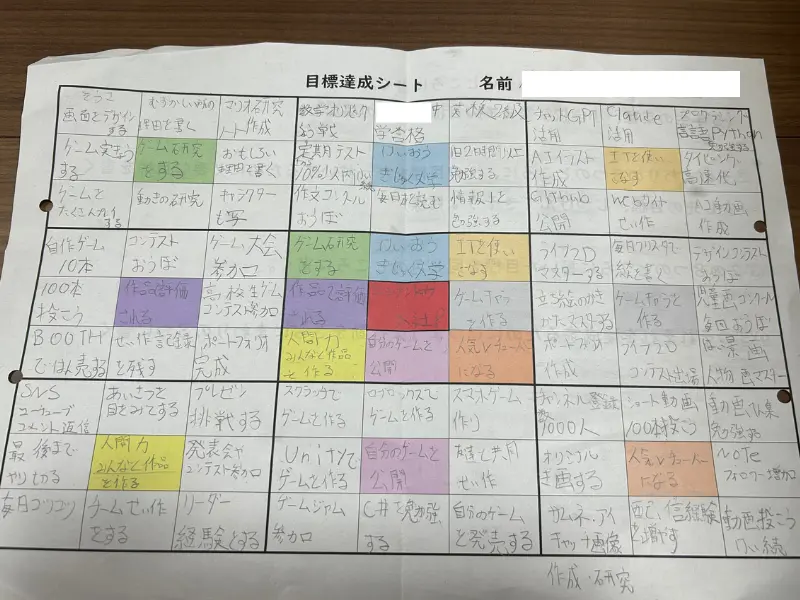 目標達成シート 名前
画面をデザインする
理由を書く
マリオ研究ノート作成
数学オリンピック
学合格
英検
チャットGPT活用
Claude活用
プログラミング言語Python
ゲーム実きょうする
ゲーム研究をする
おもしろい理由を書く
定期テスト
10%以内
2時間以上勉強する
AIイラスト作成
ITを使いこなす
タイピング高速化
ゲームをたくさんプレイする
動きの研究
キャラクターも写
作文コンクールおうぼ
毎日本を読む
情報I
勉強する
Github公開
webサイトせい作
AI動画作成
自作ゲーム10本
コンテストおうぼ
ゲーム大会参加
ゲーム研究をする
ITを使いこなす
ライブ2Dマスターする
毎日クリスタで絵を書く
デザインコンテストおうぼ
100本投こう
作品で評価される
高校生ゲームコンテスト参加
作品で評価される
ゲームキャラを作る
立ち絵のかきかたマスターする
ゲームキャラを作る
児童画コンクール毎回おうぼ
BOOTHではん売する
せい作記録を残す
ポートフォリオ完成
人間力
みんなと作品を作る
自分のゲームを公開
人気Vチューバーになる
ポートフォリオ作成
ライブ2Dコンテスト出場
はい景画
人物画マスター
SNS
ユーチューブ
コメント返信
あいさつを目をみてする
プレゼン挑戦する
スクラッチでゲームを作る
ロブロックスでゲームを作る
スマホゲーム作り
チャンネル登録数
1000人
ショート動画100本投こう
動画へん集勉強
最後までやりきる
人間力
みんなと作品を作る
発表会やコンテスト参加
Unityでゲームを作る
自分のゲームを公開
共同せい作
オリジナル
画する
人気Vチューバーになる
NOTE
フォロワー増加
毎日コツコツ
チームせい作をする
リーダー経験をする
ゲームジャム参加
C#を勉強する
自分のゲームを発売する
サムネ、アイキャッチ画像
配信経験を増やす
動画投こうけい続
作成・研究